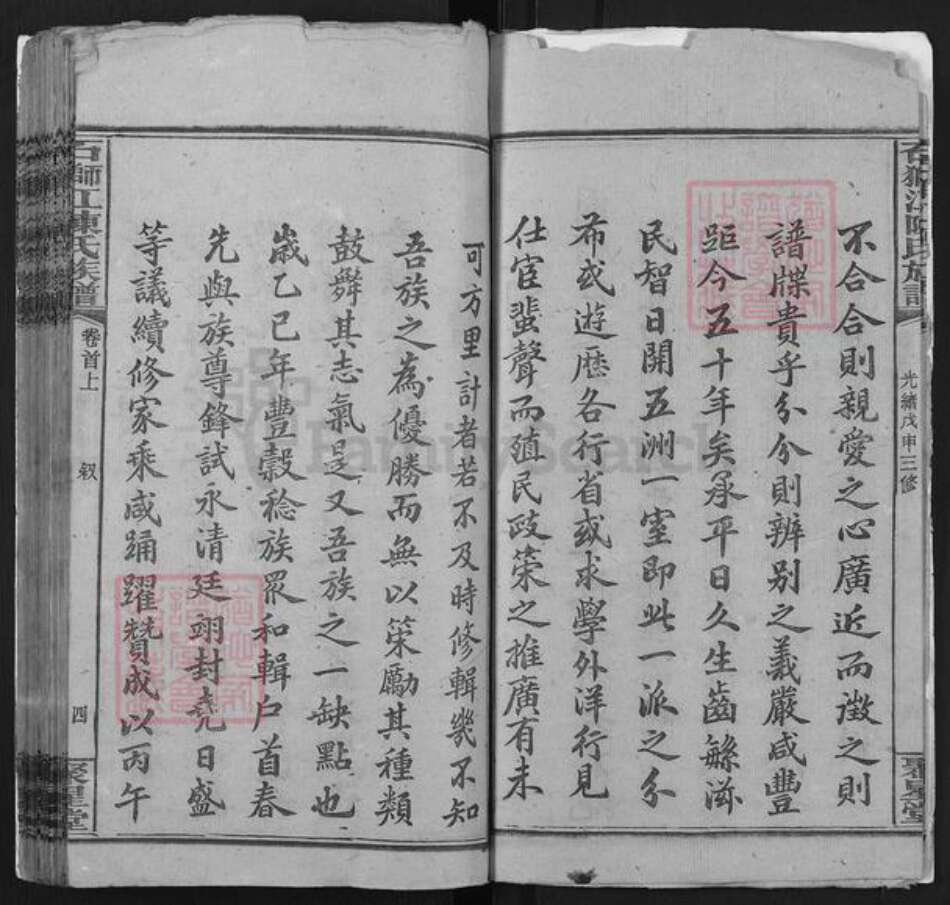 石獅江陳氏族譜
光緒戊申三修
聚星堂
不合合則親愛之心廣近而徵之則
譜牒貴乎分分則辨别之義嚴咸豐
距今五十年矣承平日久生齒繇滋
民智日開五洲一室即此一派之分
布或遊歷各行省或求學外洋行見
仕宦蜚聲而殖民政策之推廣有未
可方里計者若不及時修輯幾不知
吾族之為優勝而無以策勵其種類
鼓舞其志氣是又吾族之一缺點也
歲乙巳年豐穀稔族眾和輯户首春
先與族尊鋒試永清廷翊封堯日盛
等議續修家乘咸踊躍贊成以丙午
石獅江陳氏族譜
卷首上
叙
四
聚星堂
FamilySearch